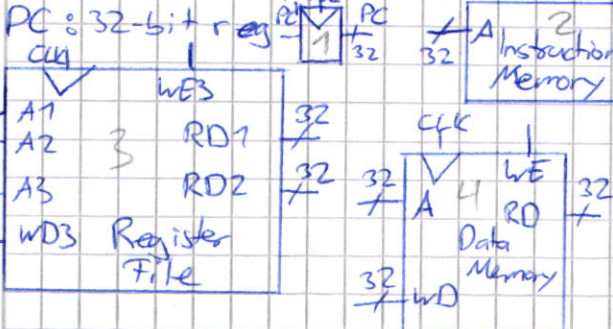 PC: 32-bit reg
PC'
CLK
1
PC
32
32
A
2
Instruction
Memory
CLK
WE3
A1
A2
A3
WD3
3
RD1
RD2
32
32
Register
File
CLK
WE
32
A
4
RD
32
Data
Memory
32
WD